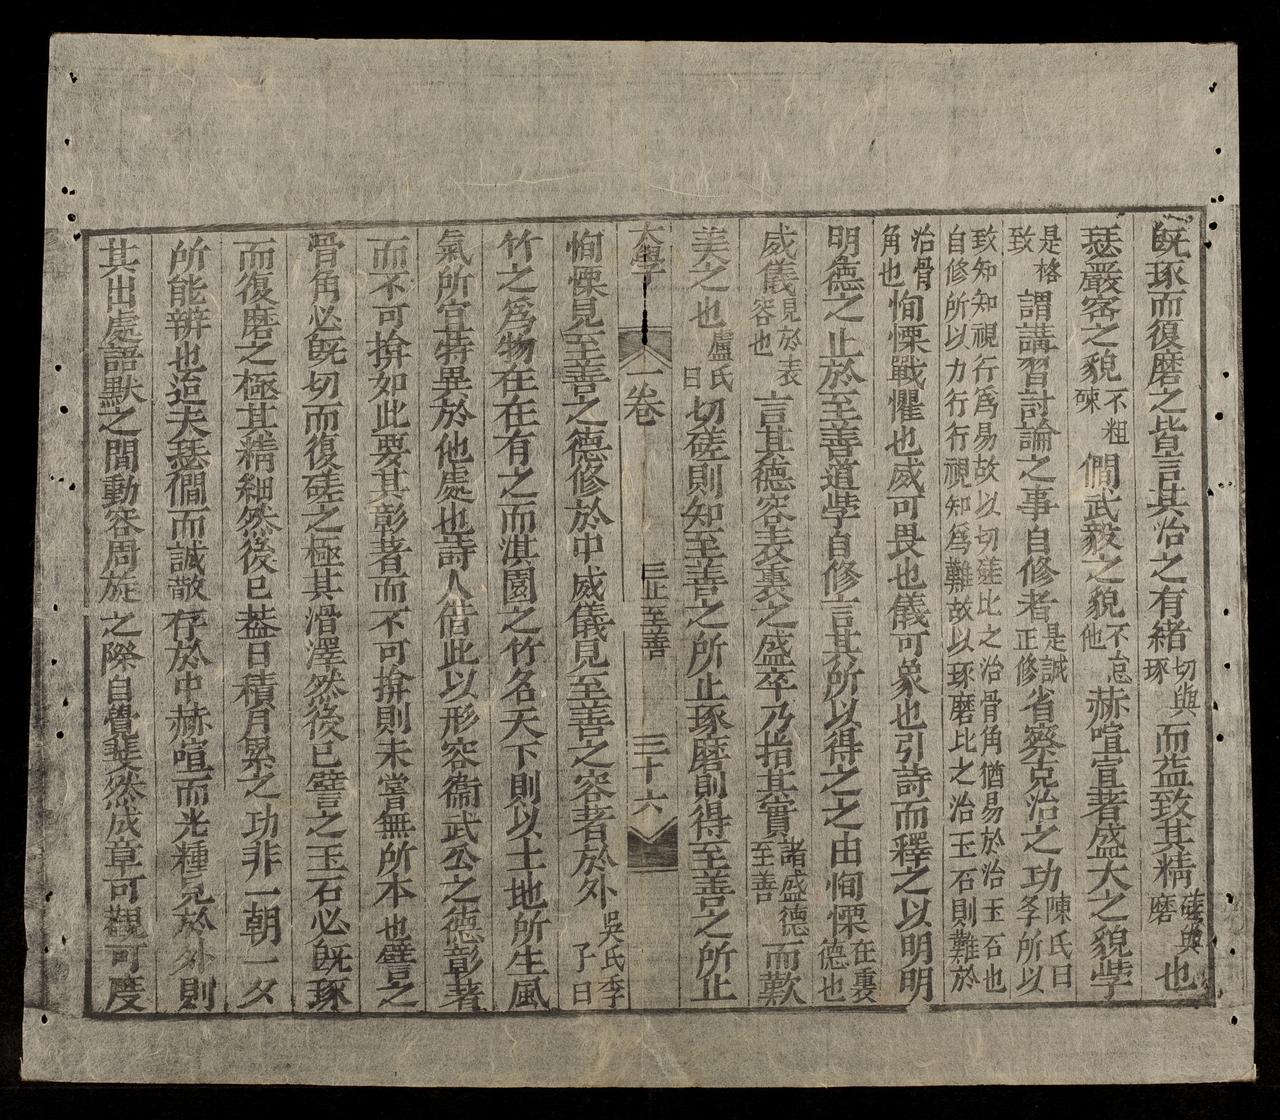 既琢而復磨之皆言其治之有緒切與琢而益致其精磋與磨也
瑟嚴密之貌不粗踈僩武毅之貌不怠他赫喧宣著盛大之貌斈
是格致謂講習討論之事自修者是誠正修省察克治之功陳氏曰斈所以
致知知視行爲易故以切磋比之治骨角猶易於治玉石也
自修所以力行行視知爲難故以琢磨比之治玉石則難於
治骨角也恂慄戰懼也威可畏也儀可象也引詩而釋之以明明
明德之止於至善道斈自修言其所以得之之由恂慄在裏德也
威儀見於表容也言其德容表裏之盛卒乃指其實諸盛德至善而歎
美之也盧氏曰切磋則知至善之所止琢磨則得至善之所止
大學 一卷 三止至善 三十六
恂慄見至善之德修於中威儀見至善之容著於外吳氏季子曰
竹之爲物在在有之而淇園之竹名天下則以土地所生風
氣所宜特異於他處也詩人借此以形容衞武公之德彰著
而不可揜如此要其彰著而不可揜則未嘗無所本也譬之
骨角必旣切而復磋之極其滑澤然後已譬之玉石必旣琢
而復磨之極其精細然後已葢日積月累之功非一朝一夕
所能辨也迨夫瑟僩而誠敬存於中赫喧而光種見於外則
其出處語默之間動容周旋之際自覺斐然成章可觀可度